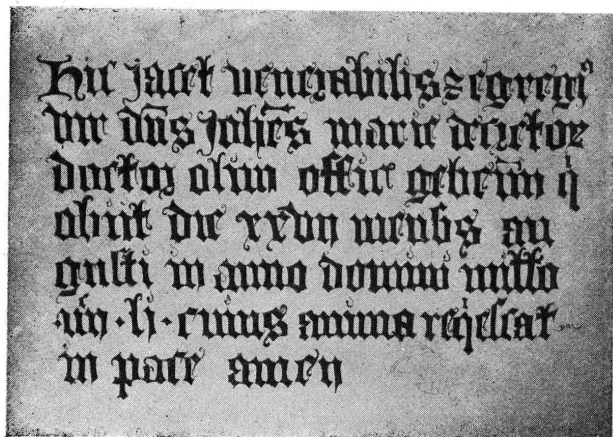 Hic jacet venerabilis ⁊ egregiꝰ
vir dn̄s Johēs marie decretor
doctor olim offic gebēn q̄
obiit die xxvij mensis au
gusti in anno domini millo
·iiij·lj·cuius anima reqiescat
in pace amen